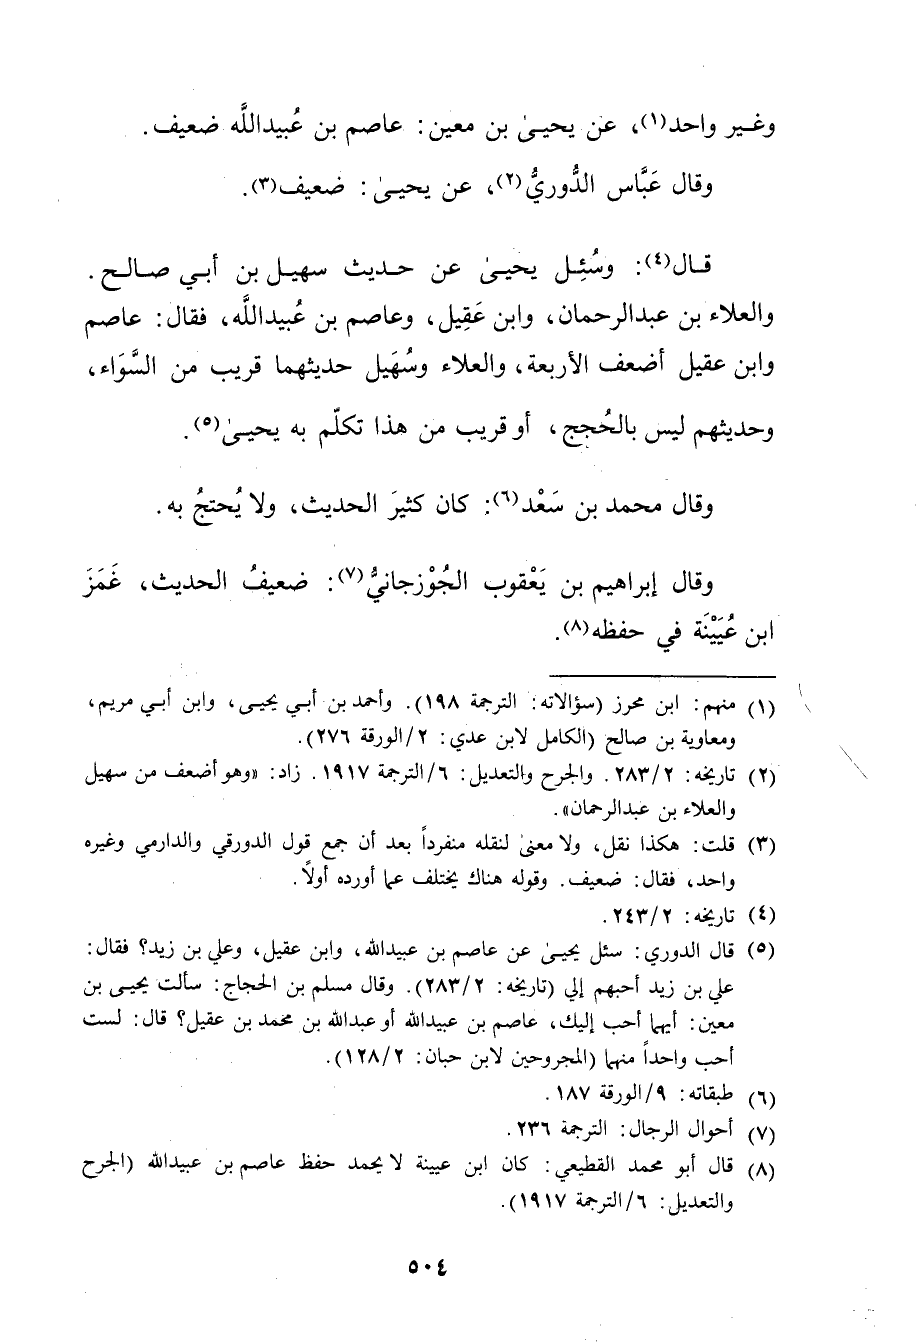 وغير واحد(١)، عن يحيىٰ بن معين: عاصم بن عُبيدالله ضعيف.
وقال عَبَّاس الدُّوريُّ(٢)، عن يحيىٰ: ضعيف(٣).
قال(٤): وسُئِل يحيىٰ عن حديث سهيل بن أبي صالح.
والعلاء بن عبدالرحمان، وابن عَقِيل، وعاصم بن عُبيدالله، فقال: عاصم
وابن عقيل أضعف الأربعة، والعلاء وسُهَيل حديثهما قريب من السَّوَاء،
وحديثهم ليس بالحُجج، أو قريب من هذا تكلّم به يحيىٰ(٥).
وقال محمد بن سَعْد(٦): كان كثيرَ الحديث، ولا يُحتجُ به.
وقال إبراهيم بن يَعْقوب الجُوْزجانيُّ(٧): ضعيفُ الحديث، غَمَزَ
ابن عُيَيْنَة في حفظه(٨).
(١) منهم: ابن محرز (سؤالاته: الترجمة ١٩٨). وأحمد بن أبي يحيى، وابن أبي مريم،
ومعاوية بن صالح (الكامل لابن عدي: ٢/الورقة ٢٧٦).
(٢) تاريخه: ٢٨٣/٢. والجرح والتعديل: ٦/الترجمة ١٩١٧. زاد: «وهو أضعف من سهيل
والعلاء بن عبدالرحمان».
(٣) قلت: هكذا نقل، ولا معنىٰ لنقله منفرداً بعد أن جمع قول الدورقي والدارمي وغيره
واحد، فقال: ضعيف. وقوله هناك يختلف عما أورده أولاً.
(٤) تاريخه: ٢٤٣/٢.
(٥) قال الدوري: سئل يحيىٰ عن عاصم بن عبيدالله، وابن عقيل، وعلي بن زيد؟ فقال:
علي بن زيد أحبهم إلي (تاريخه: ٢٨٣/٢). وقال مسلم بن الحجاج: سألت يحيى بن
معين: أيهما أحب إليك، عاصم بن عبيدالله أو عبدالله بن محمد بن عقيل؟ قال: لست
أحب واحداً منهما (المجروحين لابن حبان: ١٢٨/٢).
(٦) طبقاته: ٩/الورقة ١٨٧.
(٧) أحوال الرجال: الترجمة ٢٣٦.
(٨) قال أبو محمد القطيعي: كان ابن عيينة لا يحمد حفظ عاصم بن عبيدالله (الجرح
والتعديل: ٦/الترجمة ١٩١٧).
٥٠٤